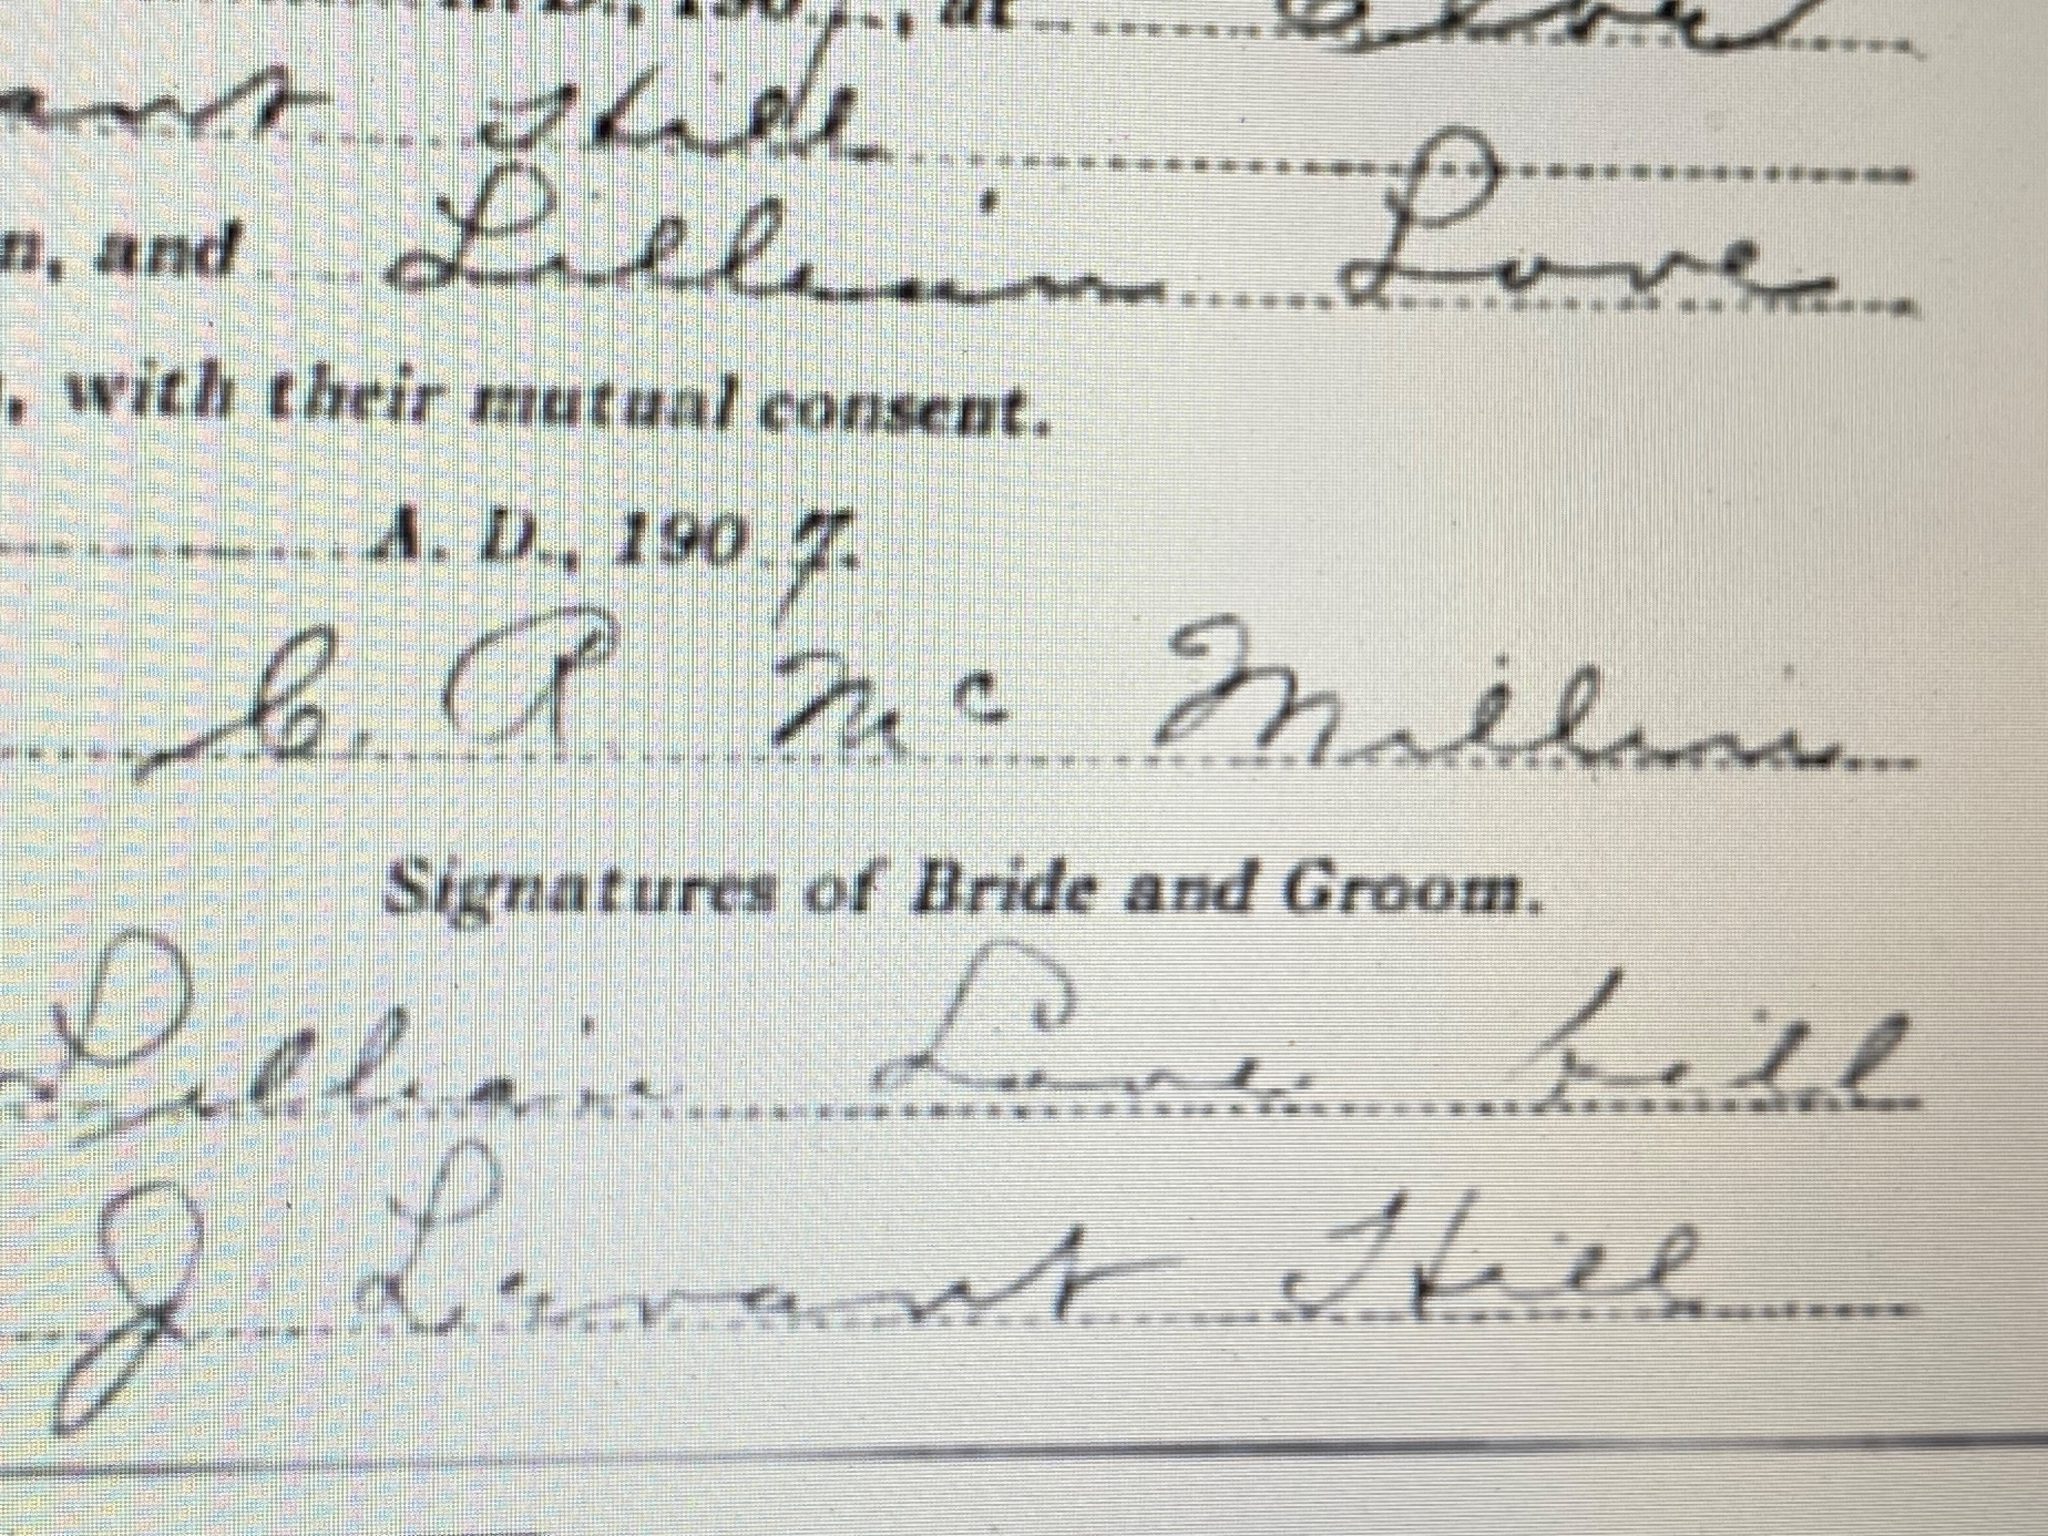 190 7., at
ant Hill
n, and Lillian Love
, with their mutual consent.
A. D., 190 7.
C. A Mc Millin
Signatures of Bride and Groom.
Lillian Love Hill
J Livant Hill